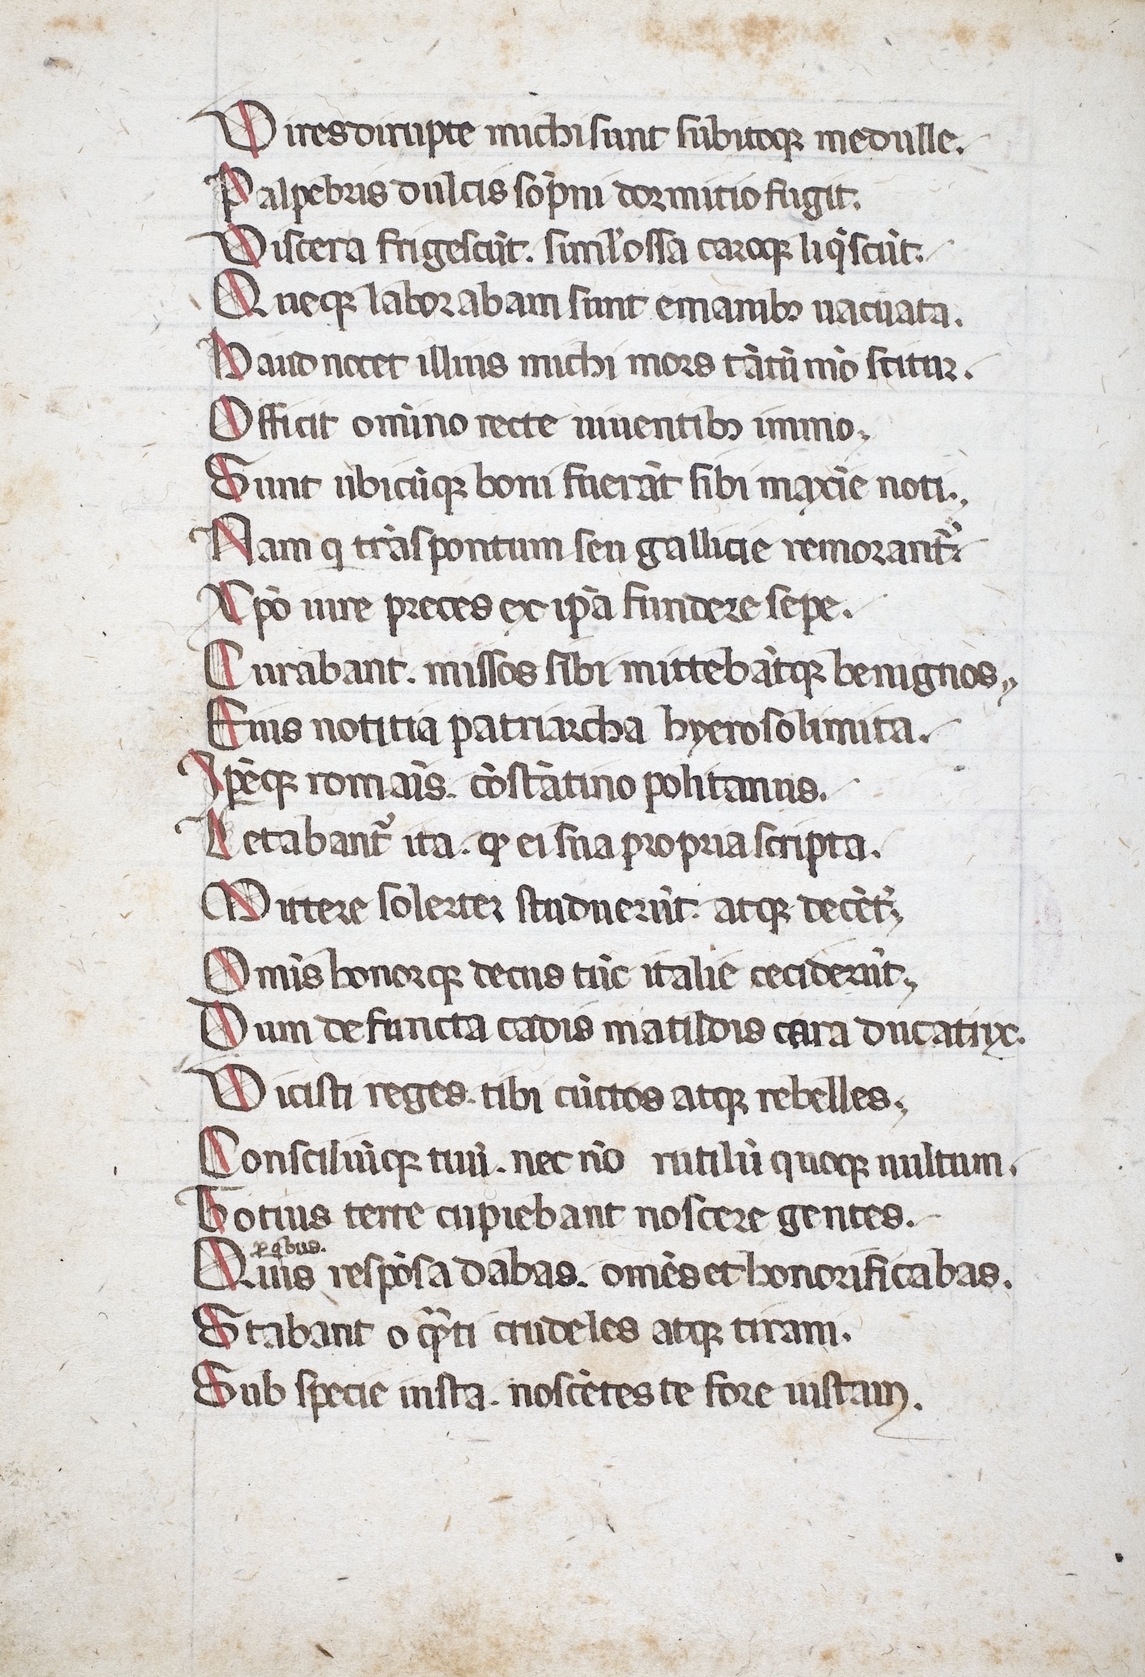 Uires dirupte michi sunt subitoq; medulle.
Palpebris dulcis sop̄ni dormitio fugit.
Uiscera frigescūt. simil' ossa caroq; liq̄scūt.
Queq; laborabam sunt e manib; uacuata.
Haud nocet illius michi mors tātū m̊o scitur.
Officit om̄ino recte uiuentib; immo.
Sunt ubicūq; boni fuerāt sibi maxīe noti.
Nam q trās pontum seu gallicie remorant᷑
Xpō iure preces ex ip̄a fundere sepe.
Curabant. missos sibi mittebātq; benignos
Eius notitia patriarcha hyerosolimita.
Ip̄eq; romāis. cōstātinopolitanus.
Letabant᷑ ita. ꝙ ei sua propria scripta.
Mittere solerter studuerūt. atq; decēt᷑
Om̄is honorq; decus tūc italie ceciderūt
Dum defuncta cadis matildis cara ducatrix.
Uicisti reges. tibi cūctos atq; rebelles.
Consciliūq; tuū. nec nō rutilū quoq; uultum.
Totius terre cupiebant noscere gentes.
p̄ q̄bus.
Quis respōsa dabas. om̄es et honorificabas.
Stabant o q̄ᷓti crudeles atq; tiranni.
Sub specie iusta. noscētes te fore iustam.